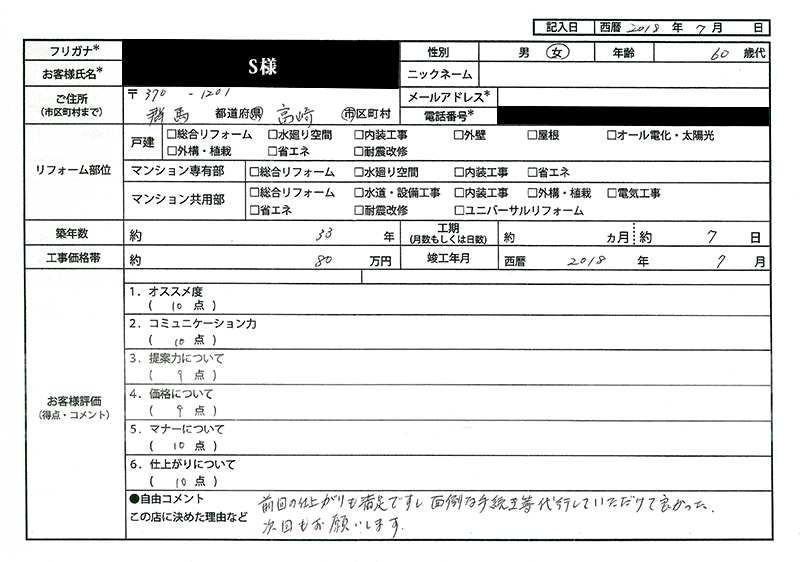 記入日 西暦 2018 年 7 月 日
フリガナ*
お客様氏名* S様
性別 男 女 年齢 60 歳代
ニックネーム
ご住所 (市区町村まで) 〒 370 - 1201
群馬 都道府県 高崎 市区町村
メールアドレス*
電話番号*
リフォーム部位
戸建 □総合リフォーム □水廻り空間 □内装工事 □外壁 □屋根 □オール電化・太陽光
□外構・植栽 □省エネ □耐震改修
マンション専有部 □総合リフォーム □水廻り空間 □内装工事 □省エネ
マンション共用部 □総合リフォーム □水道・設備工事 □内装工事 □外構・植栽 □電気工事
□省エネ □耐震改修 □ユニバーサルリフォーム
築年数 約 33 年 工期 (月数もしくは日数) 約 ヵ月 約 7 日
工事価格帯 約 80 万円 竣工年月 西暦 2018 年 7 月
お客様評価
(得点・コメント)
1．オススメ度
( 10 点 )
2．コミュニケーション力
( 10 点 )
3．提案力について
( 9 点 )
4．価格について
( 9 点 )
5．マナーについて
( 10 点 )
6．仕上がりについて
( 10 点 )
●自由コメント
この店に決めた理由など
前回の仕上がりも満足ですし 面倒な手続き等代行していただけて良かった.
次回もお願いします.